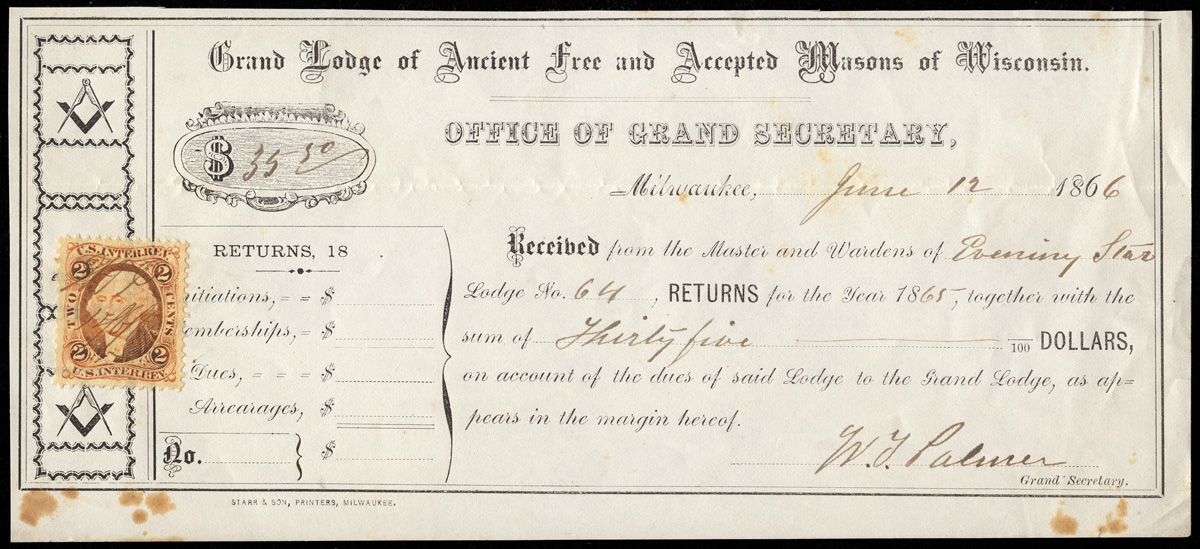 Grand Lodge of Ancient Free and Accepted Masons of Wisconsin.
OFFICE OF GRAND SECRETARY,
$ 35 50
Milwaukee, June 12 1866
Received from the Master and Wardens of Evening Star
Lodge No. 64, RETURNS for the Year 1865, together with the
sum of Thirty five /100 DOLLARS,
on account of the dues of said Lodge to the Grand Lodge, as ap=
pears in the margin hereof.
W.T. Palmer
Grand Secretary.
RETURNS, 18 .
nitiations, = = $
emberships, = $
Dues, = = = $
Arrearages, $
No. $
U.S. INTER. REV.
2 2
TWO CENTS
2 2
U.S. INTER. REV.
STARR & SON, PRINTERS, MILWAUKEE.